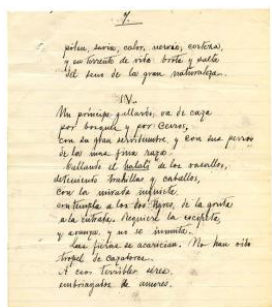 7.
polen, savia, calor, nervio, corteza,
y en torrente de vida brota y salta
del seno de la gran naturaleza.
IV
Un príncipe gallardo, va de caza
por bosques y por cerros,
con su gran servidumbre, y con sus perros
de la más fina raza.
Callando el halalí de los vasallos,
deteniendo traíllas y caballos,
con la mirada inquieta
contempla a los dos tigres, de la gruta
a la entrada. Requiere la escopeta,
y avanza, y no se inmuta.
Las fieras se acarician. No han oído
tropel de cazadores.
A esos terribles seres,
embriagados de amores.